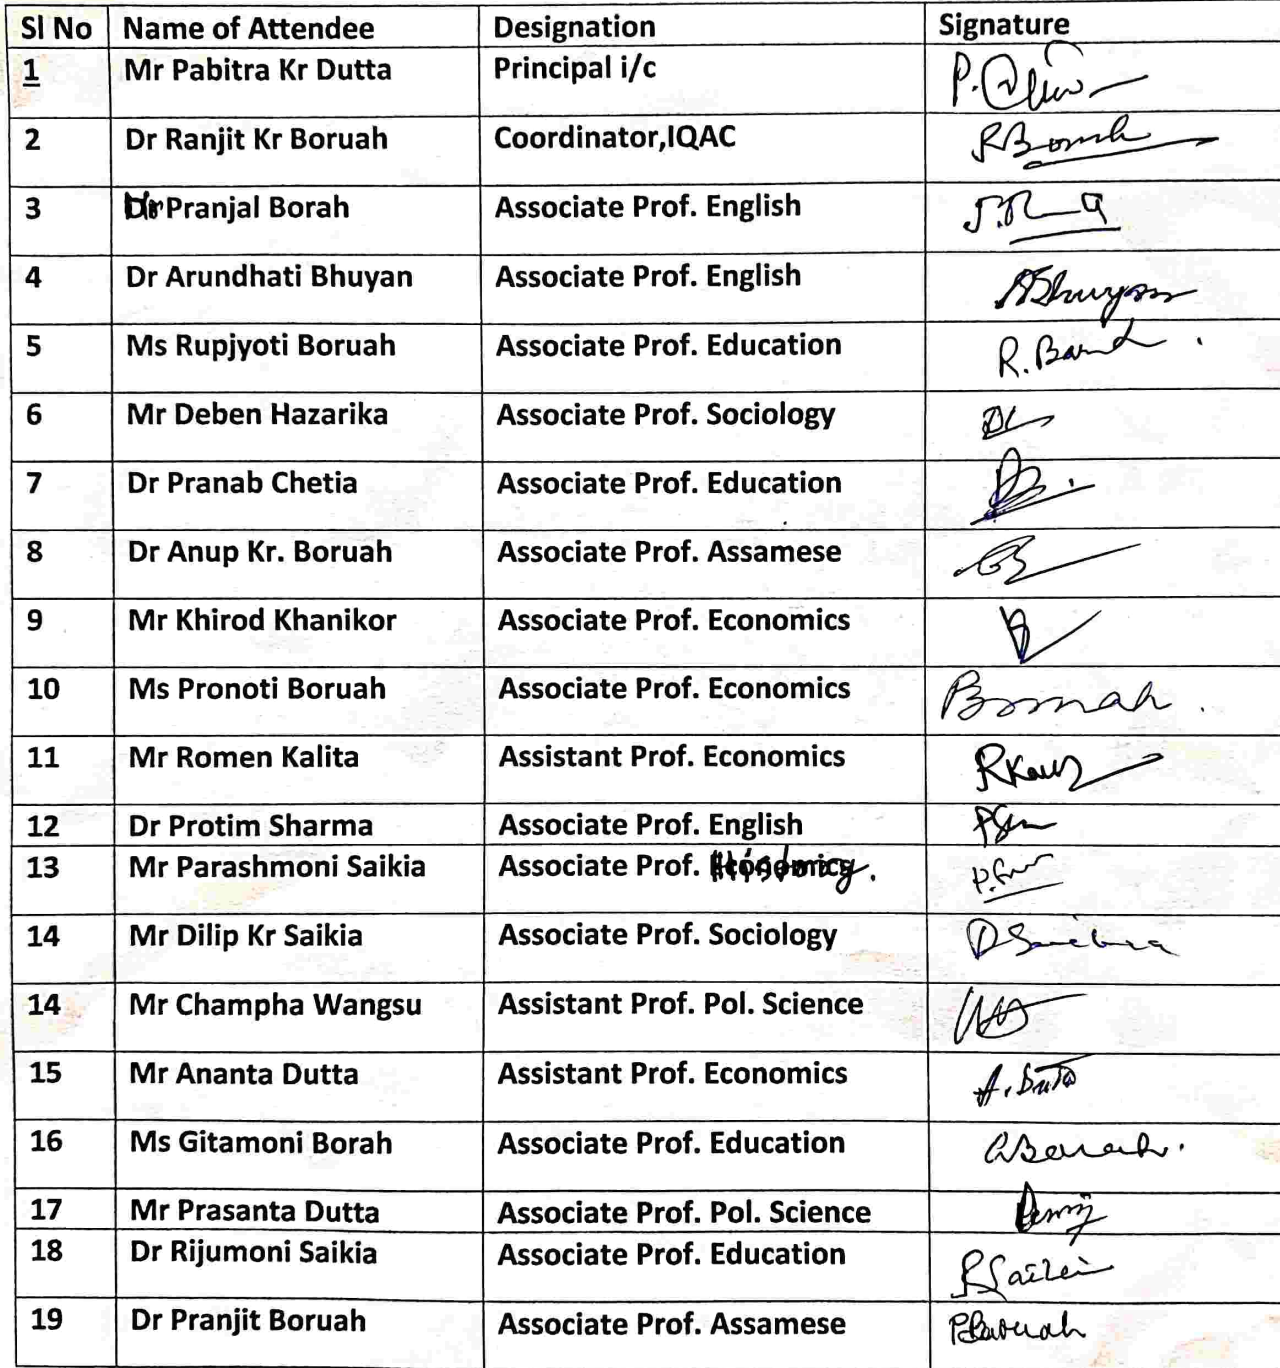 Sl No Name of Attendee Designation Signature
1 Mr Pabitra Kr Dutta Principal i/c
2 Dr Ranjit Kr Boruah Coordinator,IQAC RBoruah
3 Pranjal Borah Associate Prof. English
4 Dr Arundhati Bhuyan Associate Prof. English ABhuyan
5 Ms Rupjyoti Boruah Associate Prof. Education
6 Mr Deben Hazarika Associate Prof. Sociology
7 Dr Pranab Chetia Associate Prof. Education
8 Dr Anup Kr. Boruah Associate Prof. Assamese
9 Mr Khirod Khanikor Associate Prof. Economics
10 Ms Pronoti Boruah Associate Prof. Economics
11 Mr Romen Kalita Assistant Prof. Economics
12 Dr Protim Sharma Associate Prof. English
13 Mr Parashmoni Saikia Associate Prof. History.
14 Mr Dilip Kr Saikia Associate Prof. Sociology DSaikia
14 Mr Champha Wangsu Assistant Prof. Pol. Science
15 Mr Ananta Dutta Assistant Prof. Economics A. Dutta
16 Ms Gitamoni Borah Associate Prof. Education GBorah.
17 Mr Prasanta Dutta Associate Prof. Pol. Science
18 Dr Rijumoni Saikia Associate Prof. Education RSaikia
19 Dr Pranjit Boruah Associate Prof. Assamese PBoruah